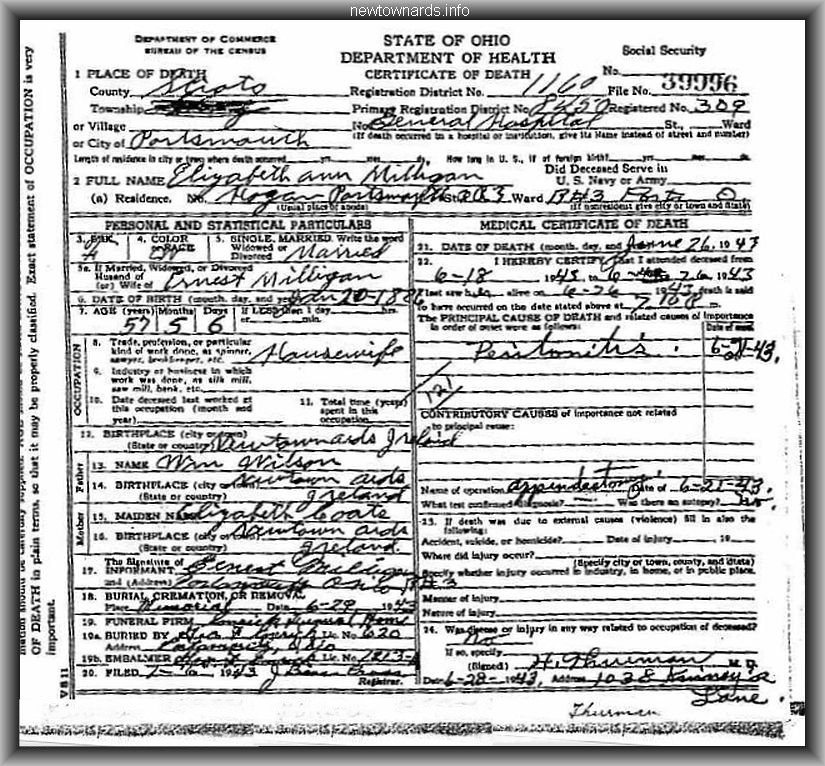 newtownards.info
DEPARTMENT OF COMMERCE
BUREAU OF THE CENSUS
STATE OF OHIO
DEPARTMENT OF HEALTH
CERTIFICATE OF DEATH
Social Security
No.
1 PLACE OF DEATH
County Scioto
Registration District No. 1160 File No. 39996
Township
Primary Registration District No. 8250 Registered No. 309
or Village No. General Hospital St., Ward
or City of Portsmouth (If death occurred in a hospital or institution, give its Name instead of street and number)
Length of residence in city or town where death occurred yrs. mos. ds. How long in U. S., if of foreign birth? yrs. mos. ds.
2 FULL NAME Elizabeth Ann Milligan
Did Deceased Serve in
U. S. Navy or Army
(a) Residence. No. Hogan Portsmouth St. RR3 Ward
(Usual place of abode) (If nonresident give city or town and State)
PERSONAL AND STATISTICAL PARTICULARS
3. SEX 4. COLOR OR RACE 5. SINGLE, MARRIED, Write the word
Widowed or
Divorced Married
5a. If Married, Widowed, or Divorced
Husand of
(or) Wife of Ernest Milligan
6. DATE OF BIRTH (month, day, and year) Jan 20-1886
7. AGE (years) Months Days If LESS then 1 day hrs.
57 5 6 or min.
OCCUPATION
8. Trade, profession, or particular
kind of work done, as spinner,
sawyer, bookkeeper, etc. Housewife
9. Industry or business in which
work was done, as silk mill,
saw mill, bank, etc.
10. Date deceased last worked at
this occupation (month and
year)
11. Total time (years)
spent in this
occupation
12. BIRTHPLACE (city or town)
(State or country) Newtownards Ireland
Father
13. NAME Wm Wilson
14. BIRTHPLACE (city or town) Newtown ards
(State or country) Ireland
Mother
15. MAIDEN NAME Elizabeth Coats
16. BIRTHPLACE (city or town) Newtown ards
(State or country) Ireland
17. The Signature of
INFORMANT Ernest Milligan
and (Address) Portsmouth Ohio RR 3
18. BURIAL, CREMATION, OR REMOVAL
Place Memorial Date 6-29, 1943
19. FUNERAL FIRM Funeral Home
19a. BURIED BY Lic. No. 620
Address Portsmouth, Ohio
19b. EMBALMER Lic. No.
20. FILED 1943 Registrar.
MEDICAL CERTIFICATE OF DEATH
21. DATE OF DEATH (month, day, and year) June 26, 1943
22. I HEREBY CERTIFY, that I attended deceased from
6-18 1943 to 6-26, 1943
I last saw her alive on 6-26 1943 death is said
to have occurred on the date stated above at m.
The PRINCIPAL CAUSE OF DEATH and related causes of importance
in order of onset were as follows: Date of onset
Peritonitis. 6-21-43.
121
CONTRIBUTORY CAUSES of importance not related
to principal cause:
Name of operation Appendectomy Date of 6-21-43.
What test confirmed diagnosis? Was there an autopsy? No.
23. If death was due to external causes (violence) fill in also the
following:
Accident, suicide, or homicide? Date of injury 19
Where did injury occur?
(Specify city or town, county, and state)
Specify whether injury occurred in industry, in home, or in public place.
Manner of injury
Nature of injury
24. Was disease or injury in any way related to occupation of deceased?
No
If so, specify
(Signed) H. Thurman M. D.
Date 6-28-1943, Address
Lane.
Thurman
V S 11
OF DEATH in plain terms, so that it may be properly classified. Exact statement of OCCUPATION is very
important.